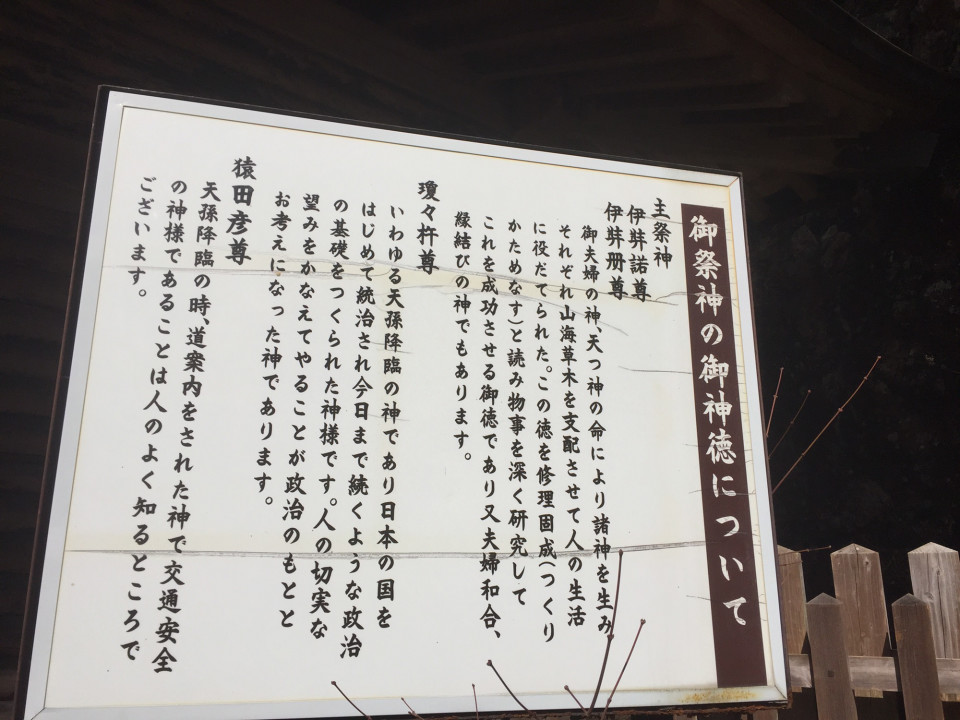 御祭神の御神徳について
主祭神
伊弉諾尊
伊弉册尊
御夫婦の神、天つ神の命により諸神を生み
それぞれ山海草木を支配させて人の生活
に役だてられた。この徳を修理固成(つくり
かためなす)と読み物事を深く研究して
これを成功させる御徳であり又夫婦和合、
縁結びの神でもあります。
瓊々杵尊
いわゆる天孫降臨の神であり日本の国を
はじめて統治され今日まで続くような政治
の基礎をつくられた神様です。人の切実な
望みをかなえてやることが政治のもとと
お考えになった神であります。
猿田彦尊
天孫降臨の時、道案内をされた神で交通安全
の神様であることは人のよく知るところで
ございます。